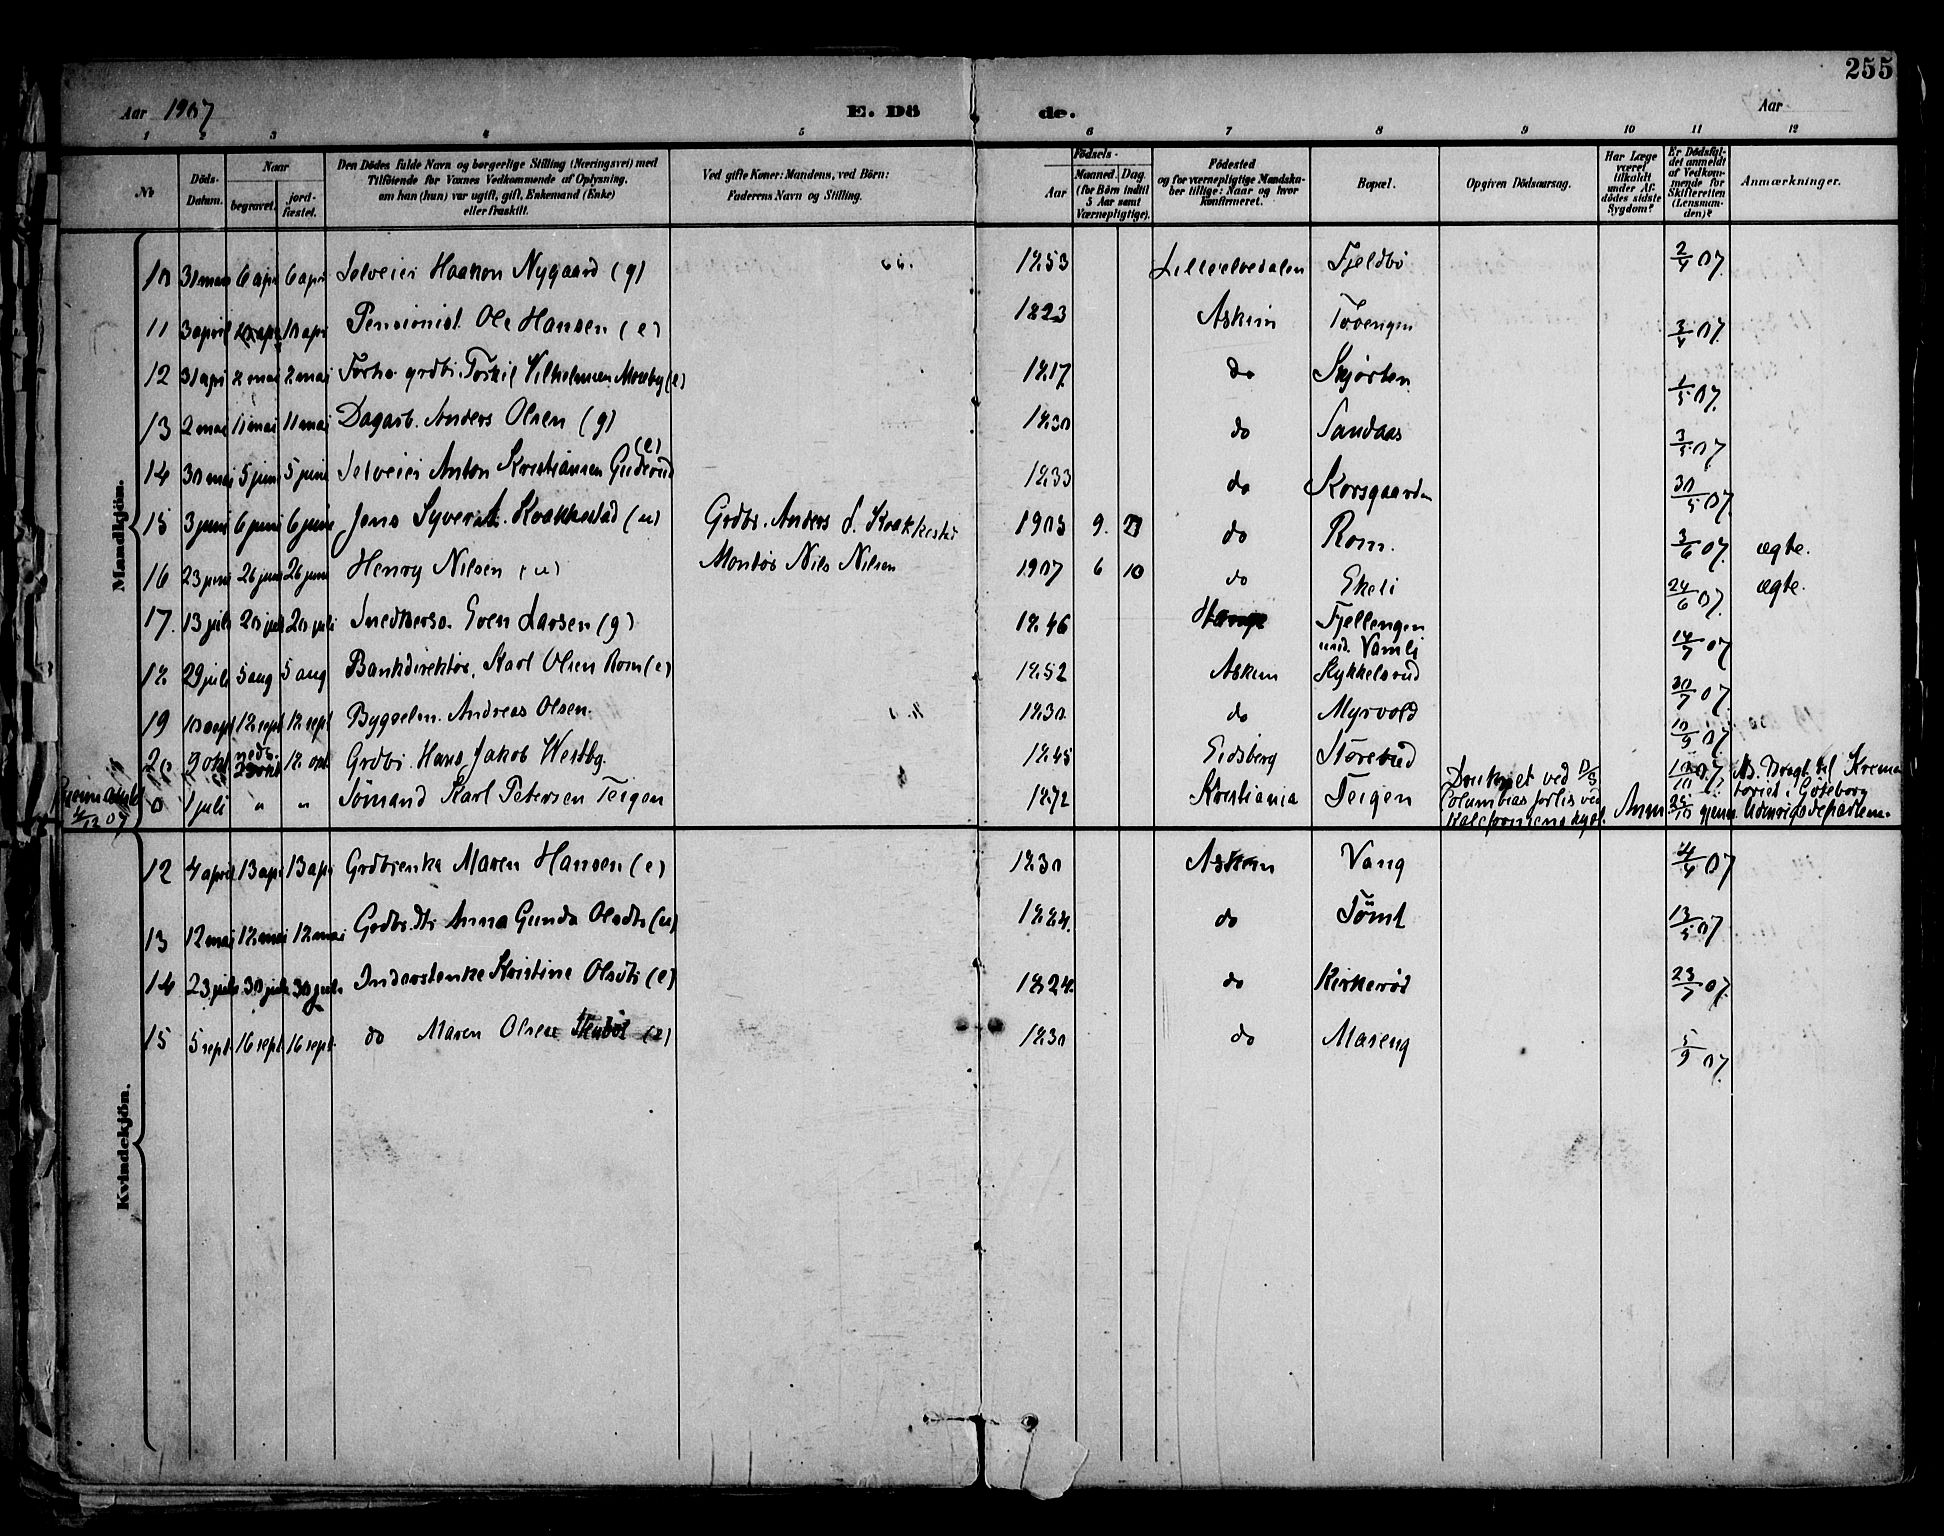 255
Aar 1907 E. Döde. Aar
1 2 3 4 5 6 7 8 9 10 11 12
No
Döds-Datum.
Naar
begravet.
jord-fæstet.
Den Dödes fulde Navn og borgerlige Stilling (Næringsvei) med
Tilföiende for Voxnes Vedkommende af Oplysning,
om han (hun) var ugift, gift, Enkemand (Enke)
eller fraskilt.
Ved gifte Koner: Mandens, ved Börn:
Faderens Navn og Stilling.
Födsels-
Aar
Maaned. Dag.
(for Börn indtil
5 Aar samt
Værnepligtige).
Födested
og for værnepligtige Mandska-
ber tillige: Naar og hvor
konfirmeret.
Bopæl.
Opgiven Dödsaarsag.
Har Læge
været
tilkaldt
under Af-
dödes sidste
Sygdom?
Er Dödsfal-
det anmeldt
af Vedkom-
mende for
Skifteretten
(Lensman-
den)?
Anmærkninger.
Mandkjön.
10 31 mars 6 apr 6 apr Selveier Haakon Nygaard (g) 1853 Lilleelvedalen Fjeldbo 2/4 07.
11 3 april 10 apr 10 apr Pensionist Ole Hansen (e) 1823 Askim Tovengen 3/4 07.
12 31 apr 2 mai 2 mai Forhv grdbr. Torkil Vilhelmsen Moseby (e) 1817 do Skjörten 1/5 07.
13 2 mai 11 mai 11 mai Dagarb. Anders Olsen (g) 1830 do Sandaas 3/5 07
14 30 mai 5 juni 5 juni Selveier Anton Kristiansen Guderud (e) 1833 do Korsgaarden 30/5 07.
15 3 juni 6 juni 6 juni Jens Syver A. Kvakkestad (u) Grdbr. Anders J. Kvakkestad 1905 9. 23 do Rom. 3/6 07. ægte.
16 23 juni 26 juni 26 juni Henry Nilsen (u) Montör Nils Nilsen 1907 6 10 do Ekeli 24/6 07. ægte.
17. 13 juli 20 juli 20 juli Snedkersv. Even Larsen (g) 1846 Stange Fjellengen
und. Vamli 14/7 07
18 29 juli 5 aug 5 aug Bankdirektör. Karl Olsen Rom (e) 1852 Askim Kykkelsrud 30/7 07.
19 10 sept 18 sept 18 sept Bygselm. Andreas Olsen. 1830 do Myrvold 10/9 07
20 9 okt 18 okt Grdbr. Hans Jakob Westby. 1845 Eidsberg Störerud 10/10 07. As. Bragt til Krema-
toriet i Göteborg
4/12 07 0 1 juli " " Sömand Karl Petersen Teigen 1872 Kristiania Teigen Druknet ved D/S
Columbias forlis ved
Kaliforniens kyst. Anm. 25/10 gjennem Utenrigsdepartem.
Kvindekjön.
12 4 april 13 apr 13 apr Grdbrenke Maren Hansen (e) 1830 Askim Vang 4/4 07
13 12 mai 18 mai 18 mai Grdbr.dtr Anna Gunda Olsdtr (u) 1884. do Tömt 13/5 07
14 23 juli 30 juli 30 juli Inderstenke Kristine Olsdtr (e) 1824. do Kirkeröd 23/7 07.
15 5 sept 16 sept 16 sept do Maren Olsen Stenböl (e) 1830 do Mareng 5/9 07.